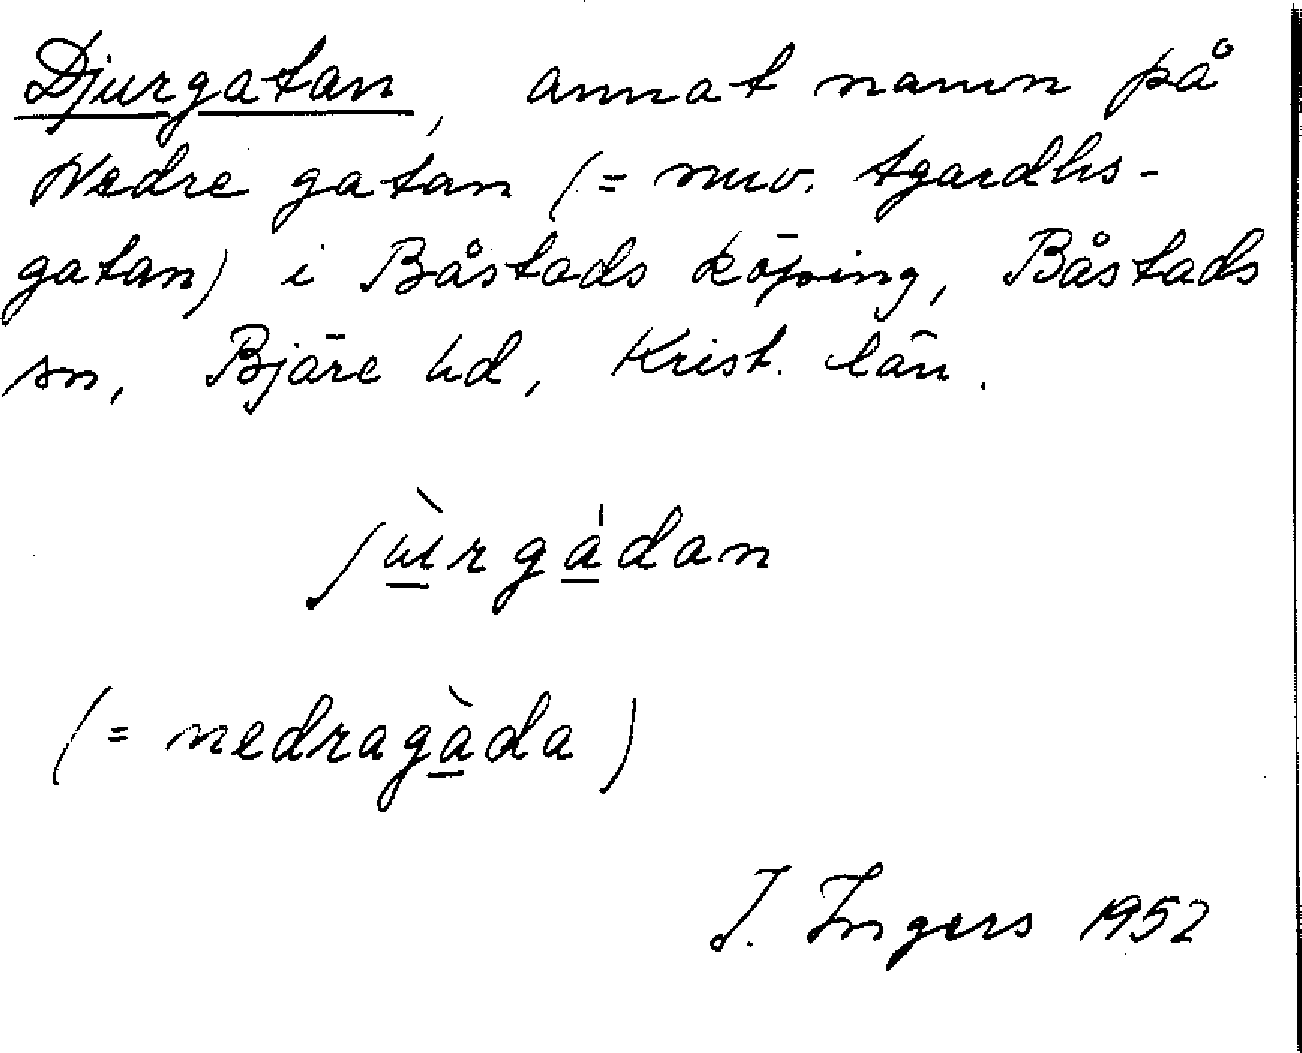 Djurgatan, annat namn på
Nedre gatan (= nuv. Agardhs-
gatan) i Båstads köping, Båstads
sn, Bjäre hd, Krist. län.
jùrgádan
(= nedragàda)
I. Ingers 1952